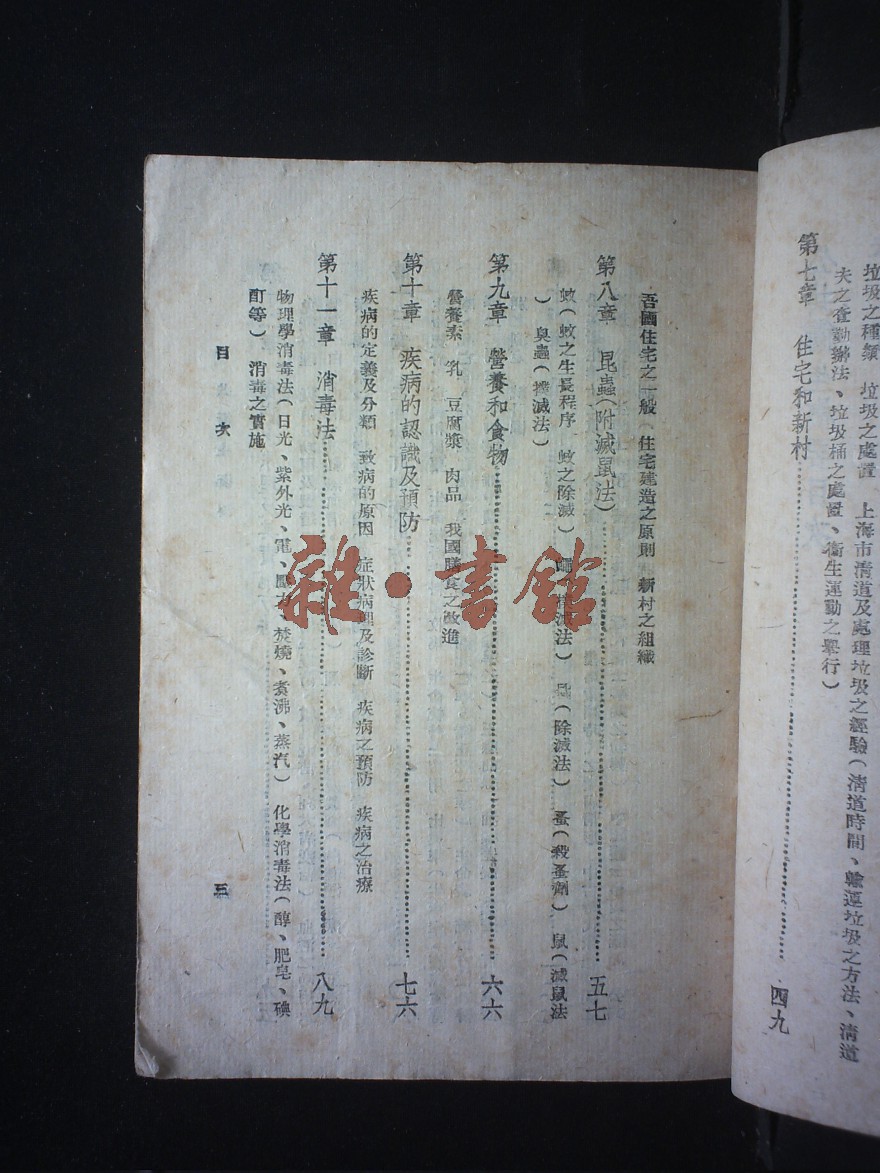 垃圾之種類　垃圾之處置　上海市清道及處理垃圾之經驗（清道時間、輸運垃圾之方法、清道
夫之查勤辦法、垃圾桶之處置、衞生運動之舉行）
第七章　住宅和新村…………四九
吾國住宅之一般　住宅建造之原則　新村之組織
第八章　昆蟲（附滅鼠法）…………五七
蚊（蚊之生長程序　蚊之除滅）　滅法）　（除滅法）　蚤（殺蚤劑）　鼠（滅鼠法
）　臭蟲（撲滅法）
第九章　營養和食物…………六六
營養素　乳　豆腐漿　肉品　我國膳食之改進
第十章　疾病的認識及預防…………七六
疾病的定義及分類　致病的原因　症狀病理及診斷　疾病之預防　疾病之治療
第十一章　消毒法…………八九
物理學消毒法（日光、紫外光、電、壓力、焚燒、煮沸、蒸汽）　化學消毒法（醇、肥皂、碘
酊等）　消毒之實施
目次　三
雜·書館